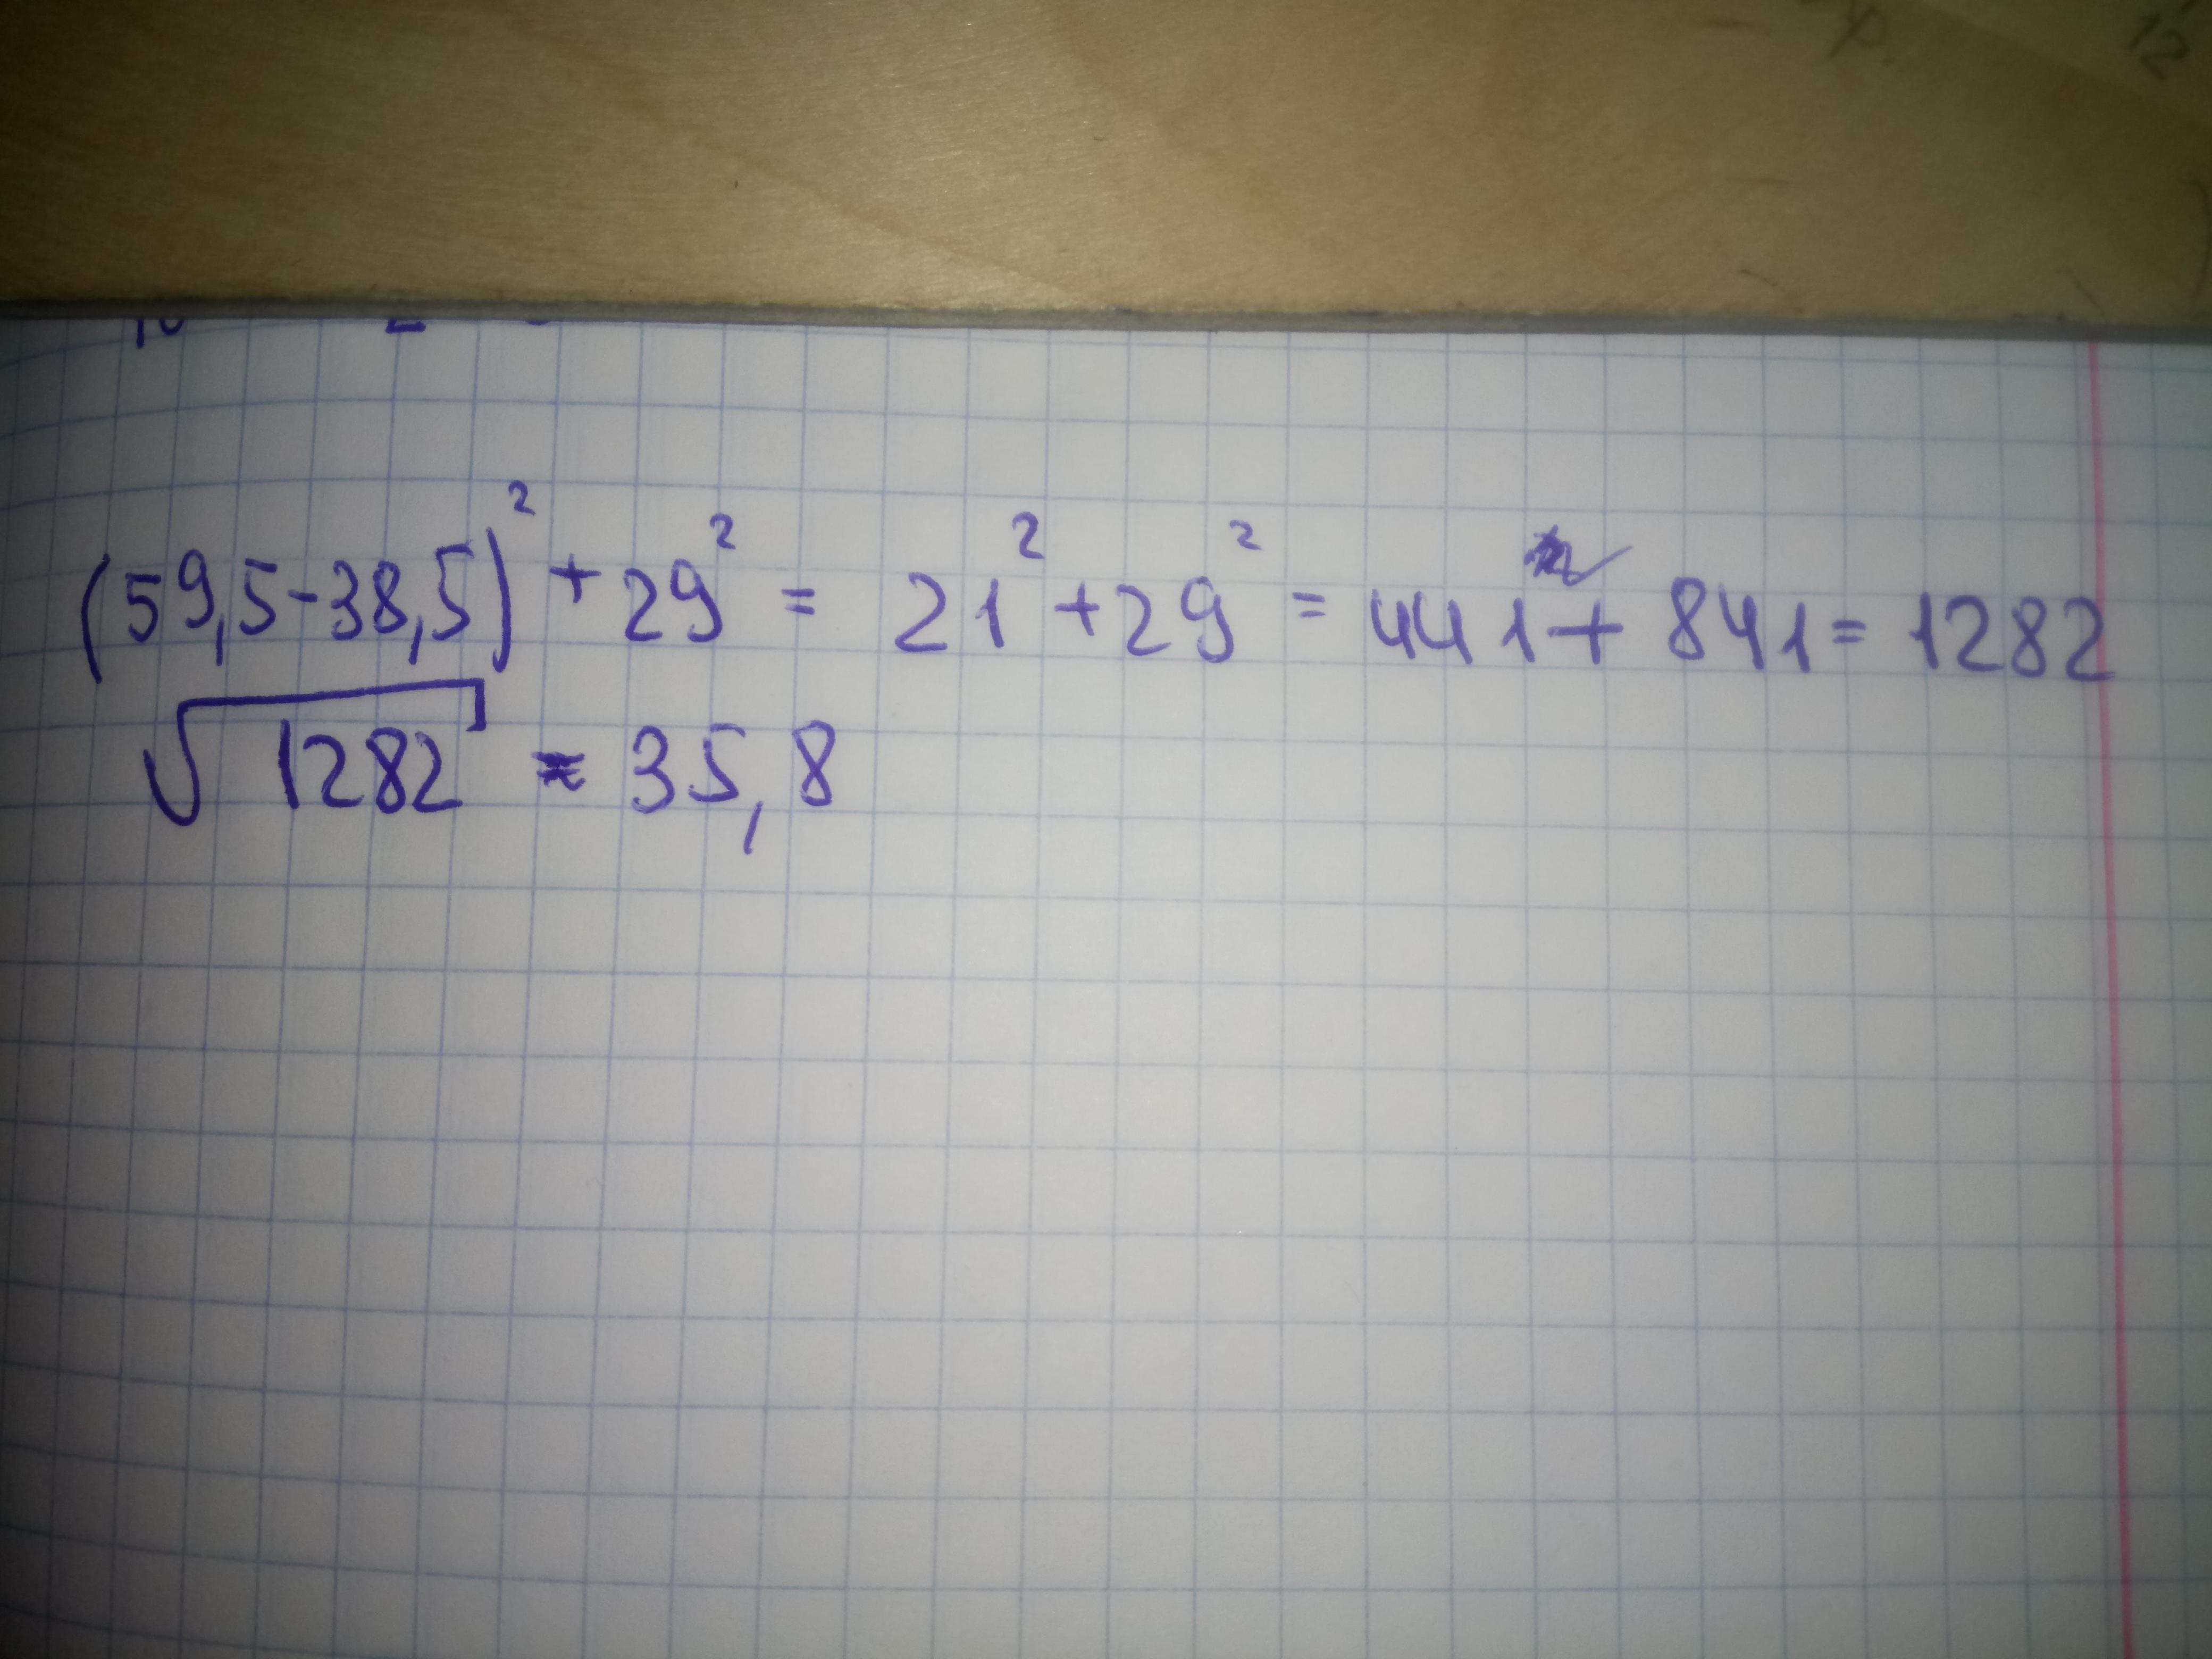 12
(59,5-38,5)² + 29² = 21² + 29² = 441 + 841 = 1282
√1282 ≈ 35,8